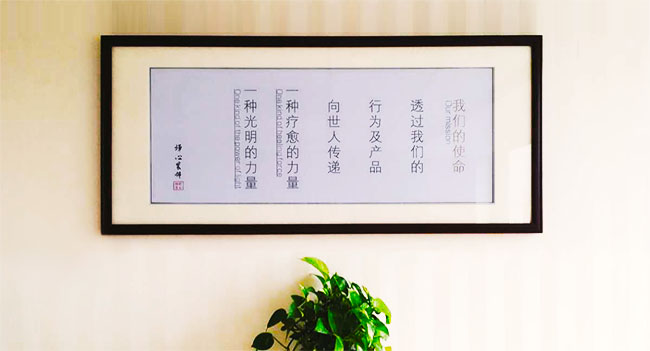 我们的使命
Our mission
透过我们的
行为及产品
向世人传递
一种疗愈的力量
一种光明的力量